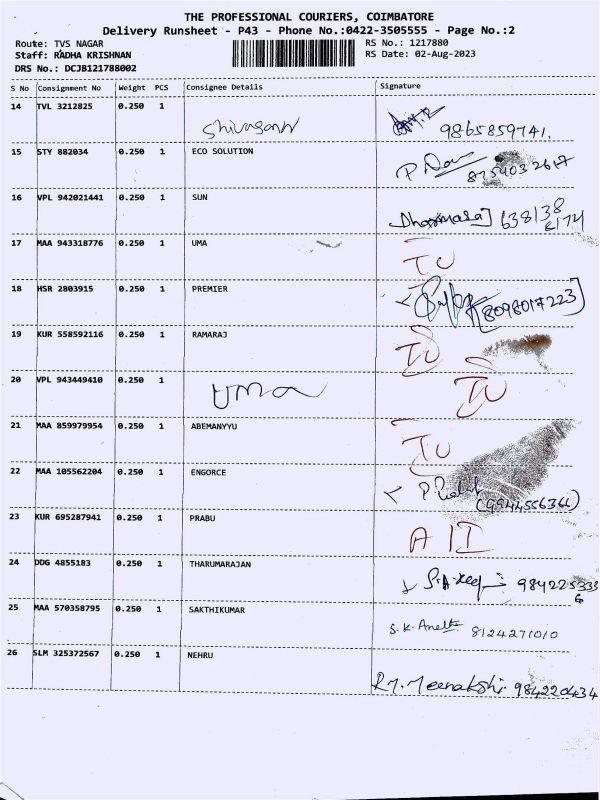 THE PROFESSIONAL COURIERS, COIMBATORE
Delivery Runsheet - P43 - Phone No.:0422-3505555 - Page No.:2
Route: TVS NAGAR RS No.: 1217880
Staff: RADHA KRISHNAN RS Date: 02-Aug-2023
DRS No.: DCJB121788002
S No Consignment No Weight PCS Consignee Details Signature
14 TVL 3212825 0.250 1
9865859741.
15 STY 882034 0.250 1 ECO SOLUTION
P
16 VPL 942021441 0.250 1 SUN
Dharmaraj 638138
6174
17 MAA 943318776 0.250 1 UMA
IU
18 HSR 2803915 0.250 1 PREMIER
[8098017223]
19 KUR 558592116 0.250 1 RAMARAJ
IU
20 VPL 943449410 0.250 1
UMA IU
21 MAA 859979954 0.250 1 ABEMANYYU
IU
22 MAA 105562204 0.250 1 ENGORCE
P
23 KUR 695287941 0.250 1 PRABU
24 DDG 4855183 0.250 1 THARUMARAJAN
25 MAA 570358795 0.250 1 SAKTHIKUMAR
S.K. 8124271010
26 SLM 325372567 0.250 1 NEHRU
R.M. Meenakshi 984220434